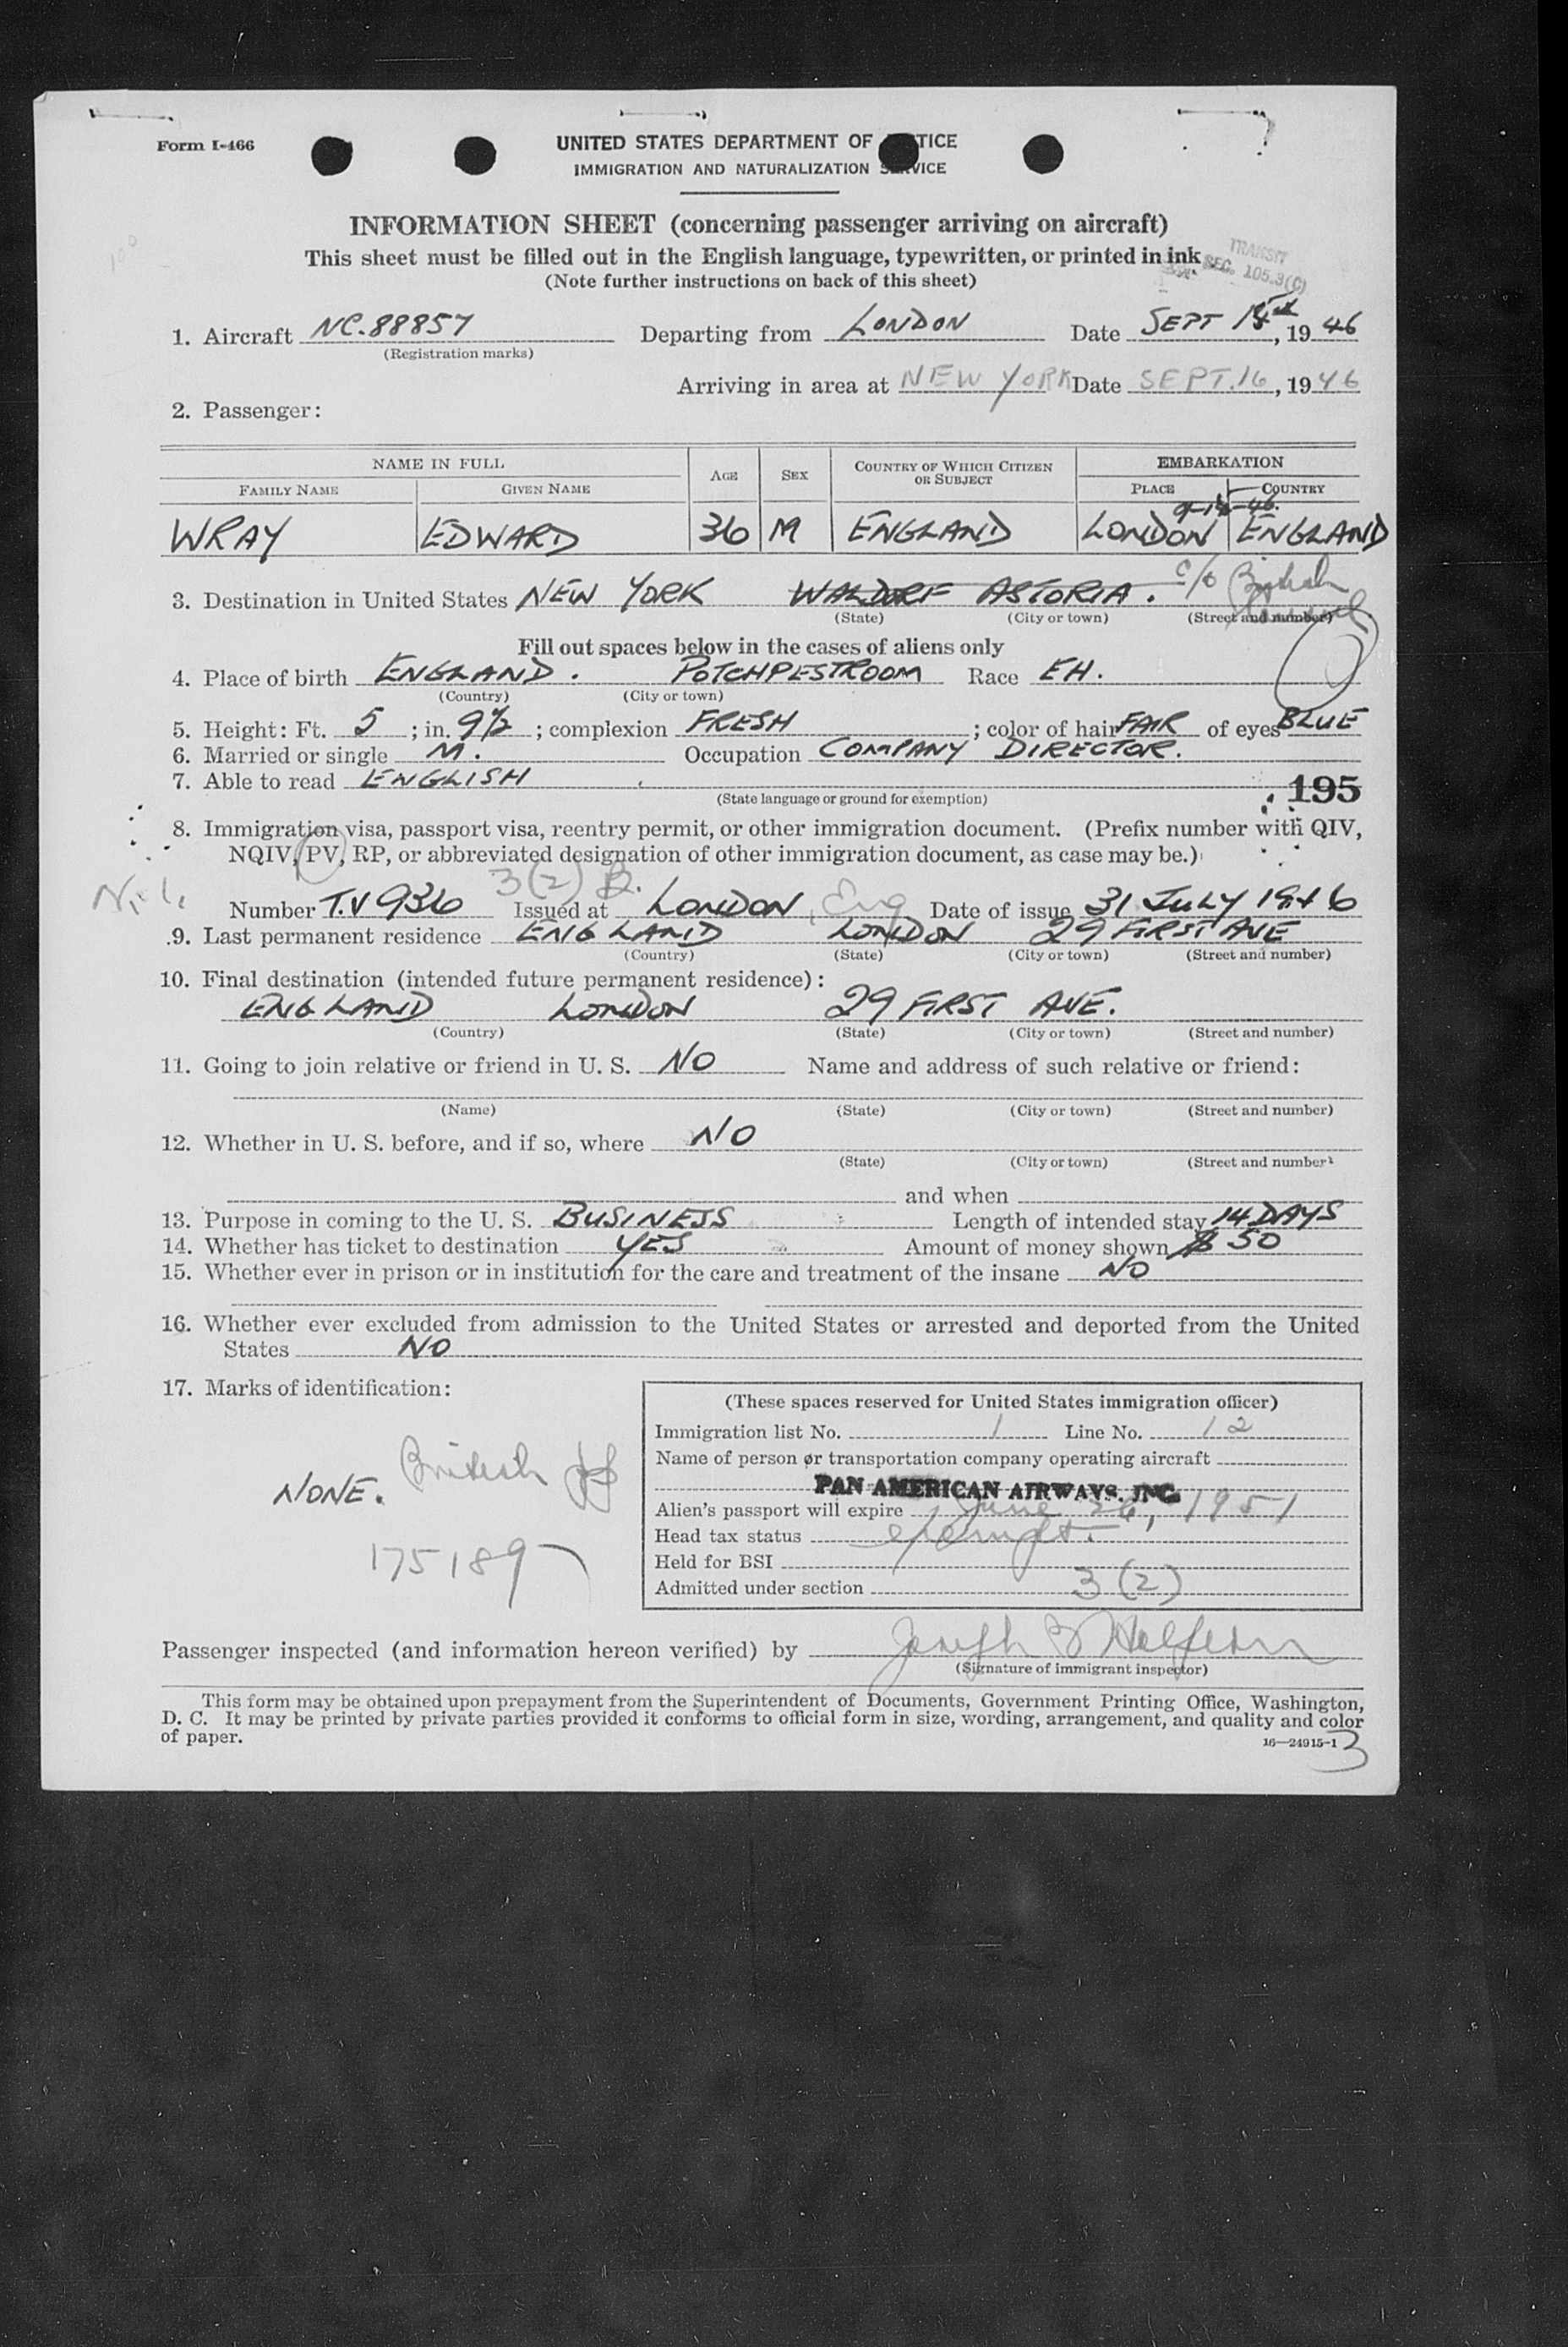 Form I-466
UNITED STATES DEPARTMENT OF TICE
IMMIGRATION AND NATURALIZATION SERVICE
INFORMATION SHEET (concerning passenger arriving on aircraft)
This sheet must be filled out in the English language, typewritten, or printed in ink.
(Note further instructions on back of this sheet)
TRANSIT
SEC. 105.3(C)
1. Aircraft NC.88857 Departing from LONDON Date SEPT 15th, 19 46
(Registration marks)
Arriving in area at NEW YORK Date SEPT. 16, 19 46
2. Passenger:
NAME IN FULL AGE SEX COUNTRY OF WHICH CITIZEN OR SUBJECT EMBARKATION
FAMILY NAME GIVEN NAME PLACE COUNTRY
WRAY EDWARD 36 M ENGLAND LONDON ENGLAND
3. Destination in United States NEW YORK WALDORF ASTORIA. c/o British
(State) (City or town) (Street and number)
Fill out spaces below in the cases of aliens only
4. Place of birth ENGLAND. POTCHPESTROOM Race EH.
(Country) (City or town)
5. Height: Ft. 5 ; in. 9½ ; complexion FRESH ; color of hair FAIR of eyes BLUE
6. Married or single M. Occupation COMPANY DIRECTOR.
7. Able to read ENGLISH
(State language or ground for exemption) 195
8. Immigration visa, passport visa, reentry permit, or other immigration document. (Prefix number with QIV,
NQIV, PV, RP, or abbreviated designation of other immigration document, as case may be.)
3(2)
Number T.V 936 Issued at LONDON, Eng Date of issue 31 JULY 1946
9. Last permanent residence ENGLAND LONDON 29 FIRST AVE
(Country) (State) (City or town) (Street and number)
10. Final destination (intended future permanent residence):
ENGLAND LONDON 29 FIRST AVE.
(Country) (State) (City or town) (Street and number)
11. Going to join relative or friend in U. S. NO Name and address of such relative or friend:
(Name) (State) (City or town) (Street and number)
12. Whether in U. S. before, and if so, where NO
(State) (City or town) (Street and number)
and when
13. Purpose in coming to the U. S. BUSINESS Length of intended stay 14 DAYS
14. Whether has ticket to destination YES Amount of money shown $ 50
15. Whether ever in prison or in institution for the care and treatment of the insane NO
16. Whether ever excluded from admission to the United States or arrested and deported from the United
States NO
17. Marks of identification:
NONE. British
175189
(These spaces reserved for United States immigration officer)
Immigration list No. 1 Line No. 12
Name of person or transportation company operating aircraft
PAN AMERICAN AIRWAYS, INC.
Alien's passport will expire June 26, 1951
Head tax status exempt.
Held for BSI
Admitted under section 3 (2)
Passenger inspected (and information hereon verified) by Joseph B Halfern
(Signature of immigrant inspector)
This form may be obtained upon prepayment from the Superintendent of Documents, Government Printing Office, Washington,
D. C. It may be printed by private parties provided it conforms to official form in size, wording, arrangement, and quality and color
of paper.
16—24915-1
3